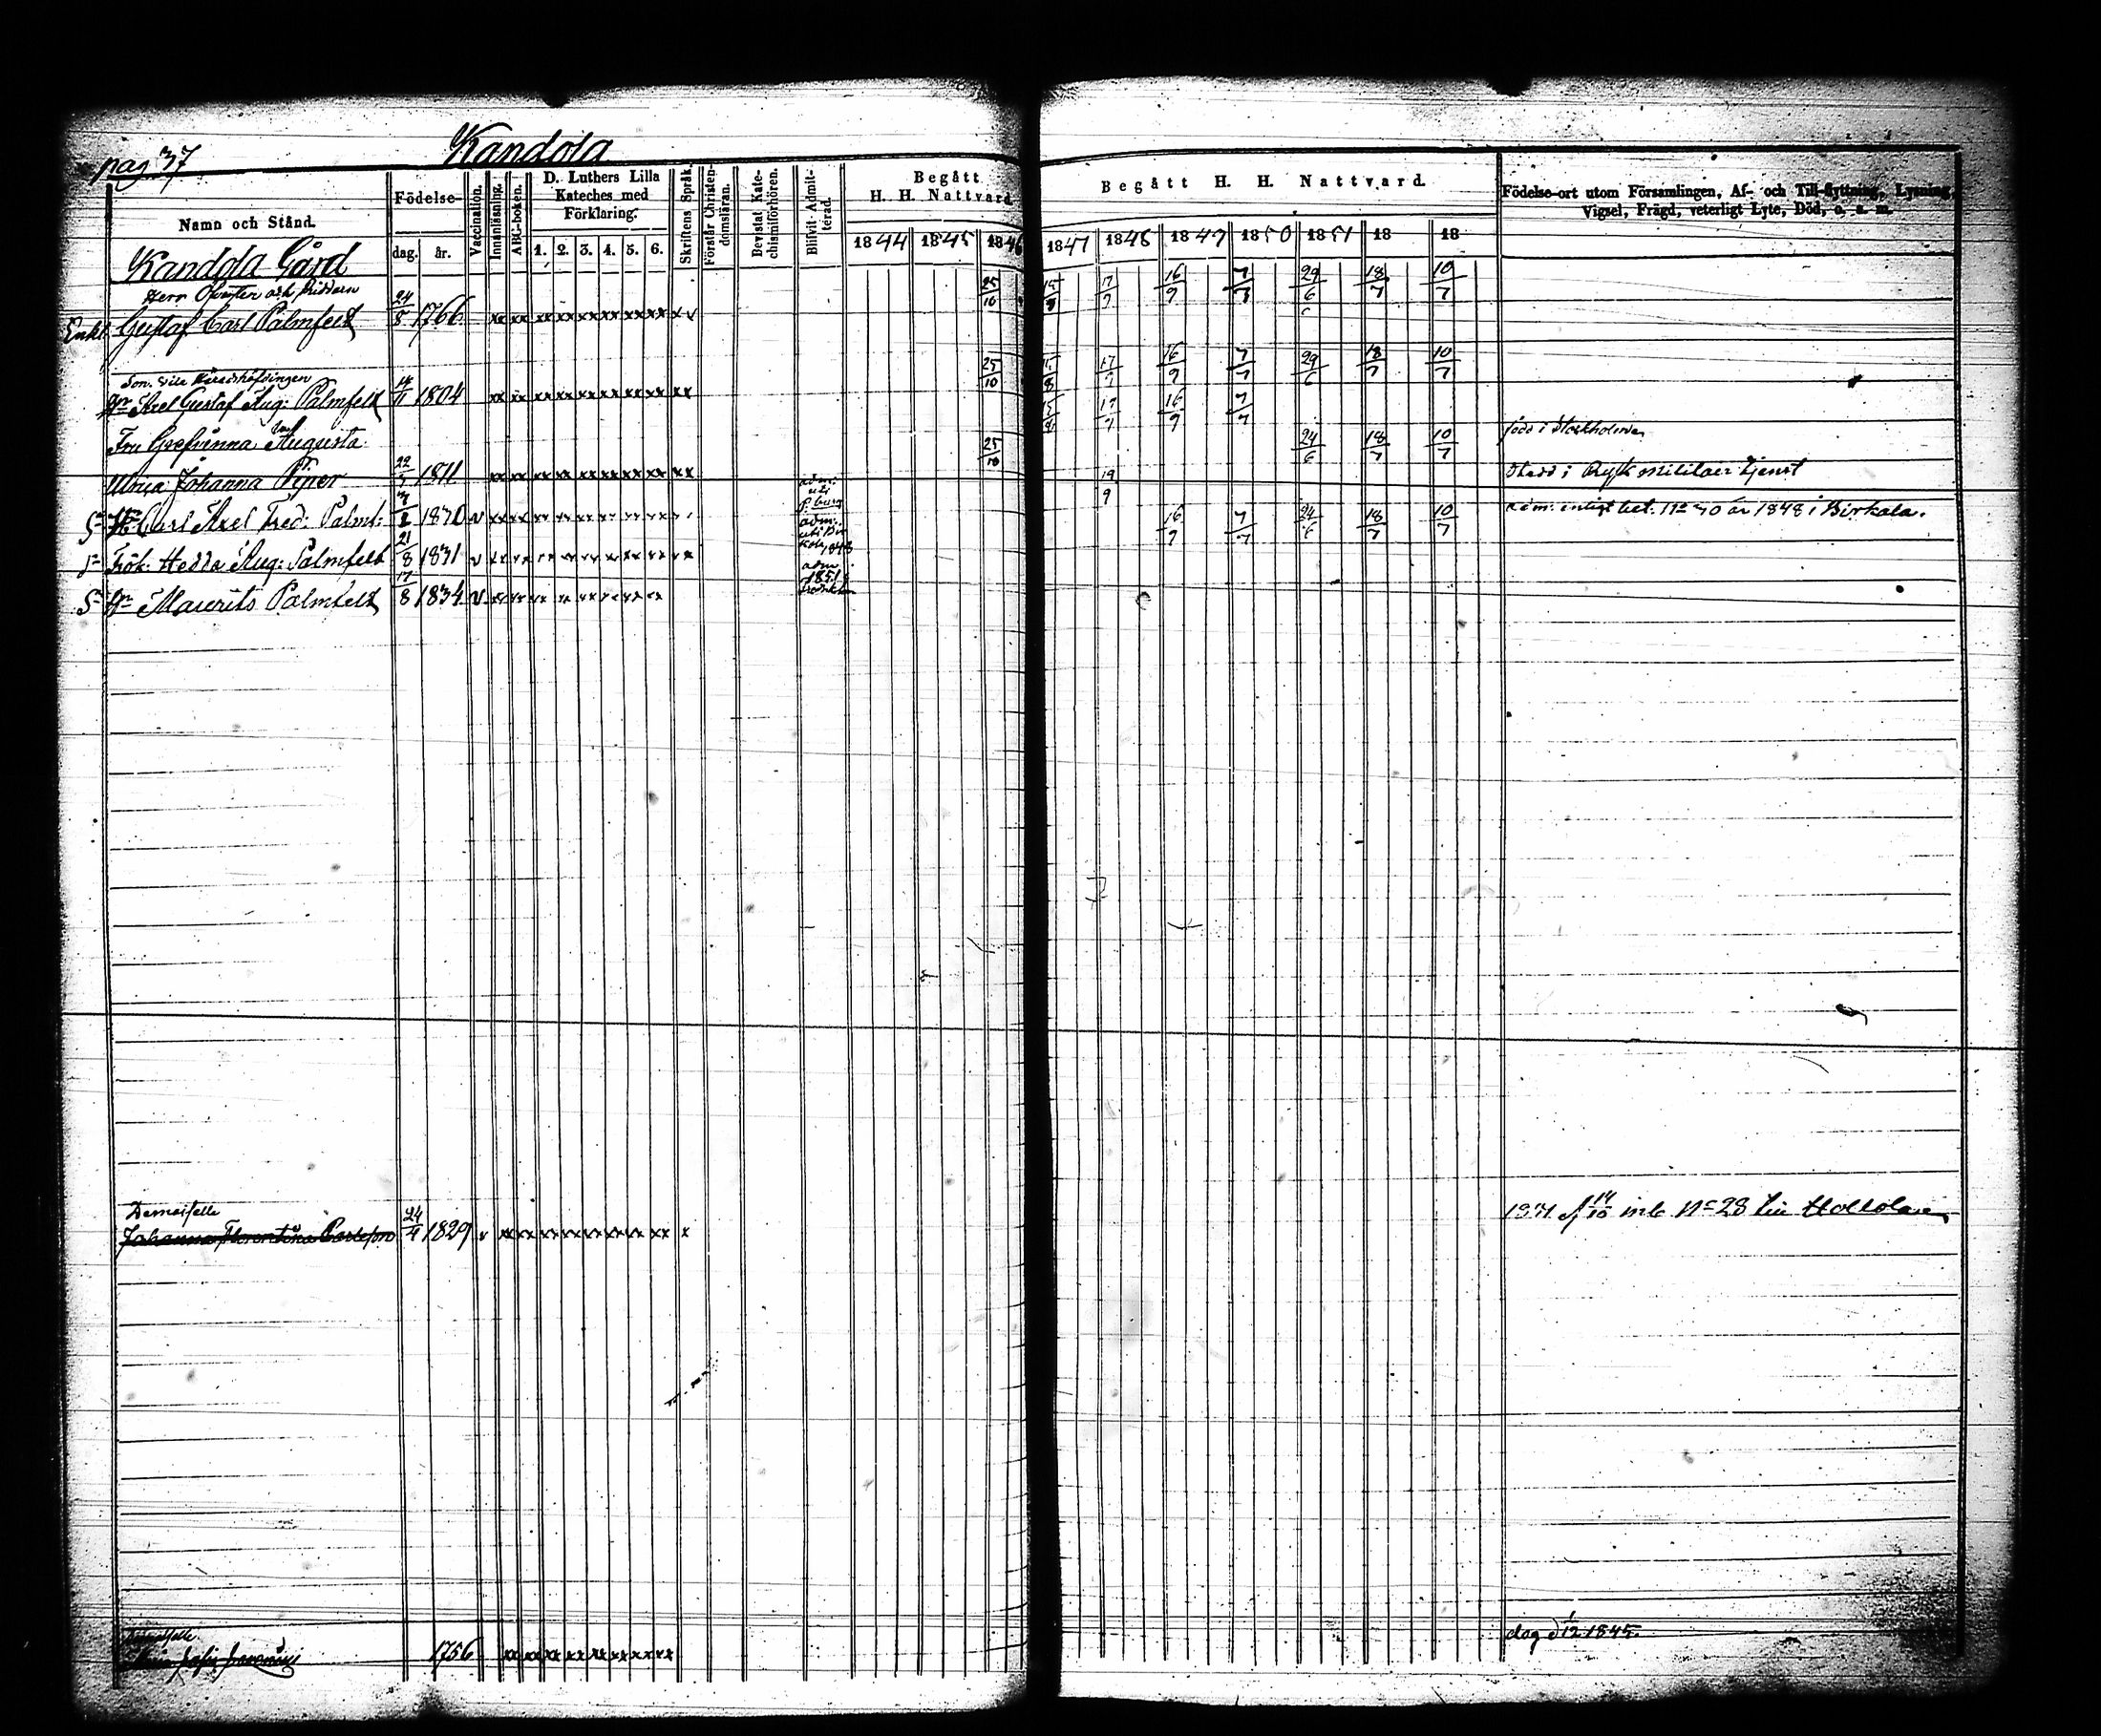 pag 37 Kandola
Namn och Stånd.
Födelse-
dag. år.
Vaccination.
Innanläsning.
ABC-boken.
D. Luthers Lilla
Kateches med
Förklaring.
1. 2. 3. 4. 5. 6.
Skriftens Språk.
Förstår Christen-
domsläran.
Bevistat Kate-
chismiförhören.
Blifvit Admit-
terad.
Begått
H. H. Nattvard
1844 1845 1846
Begått H. H. Nattvard.
1847 1848 1849 1850 1851 18 18
Födelse-ort utom Församlingen, Af- och Till-flyttning, Lysning,
Vigsel, Frägd, veterligt Lyte, Död, o. s. m.
Kandola Gård
Herr Öfverster och Riddaren
Enkl. Gustaf Carl Palmfelt 24/8 1766 25/10 15/8 17/9 16/9 7/7 29/6 18/7 10/7
Son. vice Häradshöfdingen
Hr Axel Gustaf Aug: Palmfelt 14/11 1804 25/10 15/8 17/9 16/9 7/7 29/6 18/7 10/7
Fru Grefvinna Augusta 17/9 16/9 7/7 född i Stockholm
Maria Johanna Piper 22/7 1811 25/10 24/6 18/7 10/7
S. Hr Carl Axel Fred: Palmf: 1830 v adm. 19/9 Stadd i Rysk militair tjenst
Frök. Hedda Aug: Palmfelt 21/8 1831 v adm. 1848 16/9 7/7 24/6 18/7 10/7 adm: enligt bet. No 30 år 1848 i Birkala.
S. Hr Maurits Palmfelt 17/8 1834 v adm. 1851
Demoiselle
Johanna Florentina Carlsson 24/4 1829 v 14/10 No 28 till Hollola
1756 dog d 1/12 1845.